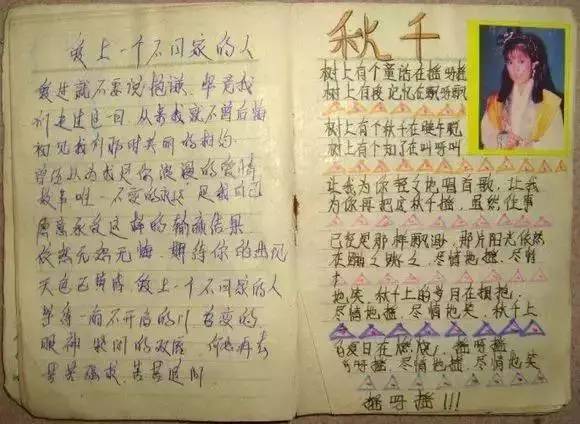 爱上一个不回家的人
爱过就不要说抱歉，毕竟我
们走过这一回，从来我就不曾后悔
初见我们那时美丽的相约
曾经以为我是你浪漫的爱情
故事唯一不变的永远 是我自己
愿意承受这样的输赢结果
依然无怨无悔 期待你的出现
天色已黄昏 爱上一个不回家的人
等待一扇不开启的门 善变的
眼神 紧闭的双唇 何必再去
苦苦强求，苦苦追问
秋千
树上有个童话在摇呀摇
树上有段记忆在飘呀飘
树上有个秋千在睡午觉
树上有个知了在叫呀叫
让我为你轻轻地唱首歌，让我
为你再把这秋千摇，虽然往事
已经是那样飘渺，那片阳光依然
在跳跳，尽情地摇，尽情
地笑，秋千上的岁月在拥抱
尽情地摇，尽情地笑，秋千上
夏日在燃烧，摇呀摇
摇呀摇，尽情地摇，尽情地笑
摇呀摇!!!